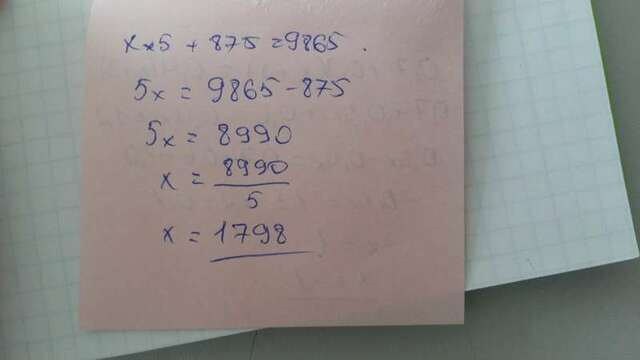 x × 5 + 875 = 9865.
5x = 9865 - 875
5x = 8990
x = 8990/5
x = 1798